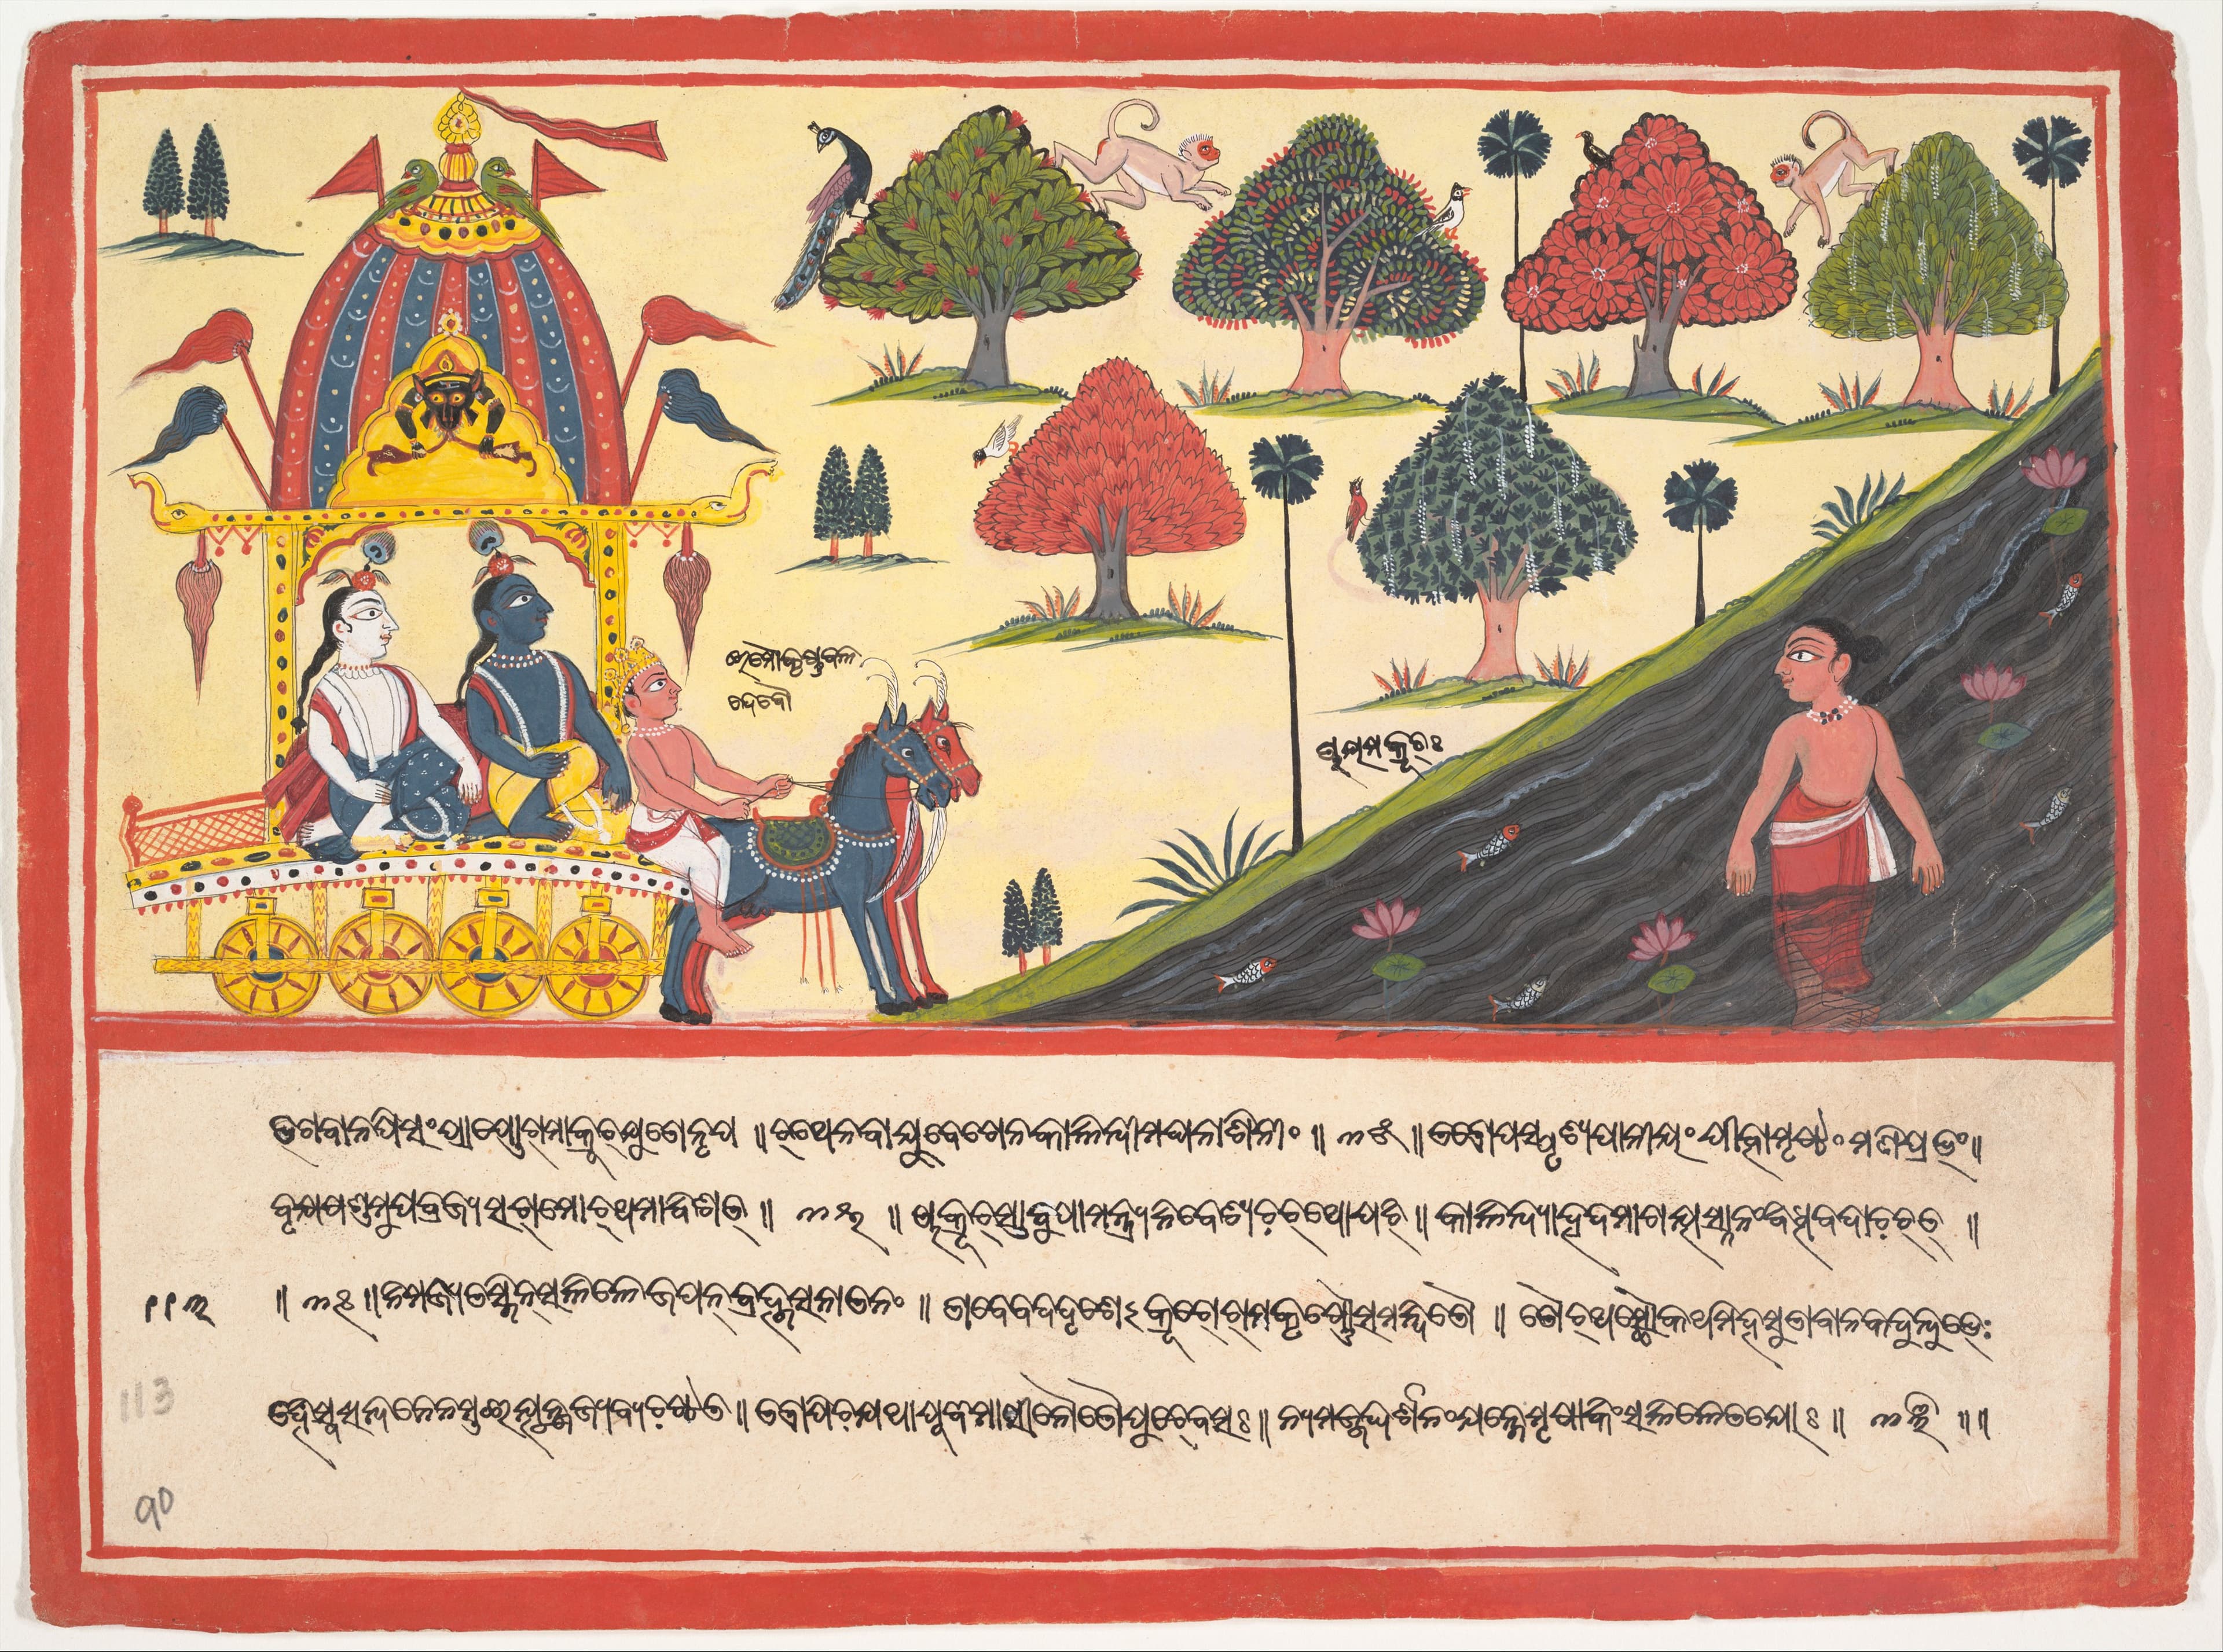 ଅୟମକ୍ରୂରଃ
ଭଗବାନପିସଂପ୍ରାପ୍ତୋରାମାକ୍ରୂରଯୁତୋନୃପ ॥ ରଥେନବାଯୁବେଗେନକାଳିନ୍ଦୀମଘନାଶିନୀଂ ॥ ॥ ତତ୍ରୋପସ୍ପୃଶ୍ୟପାନୀୟଂପୀତ୍ବାମୃଷ୍ଟଂମଣିପ୍ରଭଂ ॥
ବୃକ୍ଷଷଣ୍ଡମୁପବ୍ରଜ୍ୟସରାମୋରଥମାବିଶତ ॥ ॥ ଅକ୍ରୂରସ୍ତାବୁପାମନ୍ତ୍ର୍ୟନିବେଶ୍ୟଚରଥୋପରି ॥ କାଳିନ୍ଦ୍ୟାହ୍ରଦମାଗତ୍ୟସ୍ନାନଂବିଧିବଦାଚରତ୍ ॥
॥ ॥ ନିମଜ୍ଜ୍ୟତସ୍ମିନ୍ସଲିଲେଜପନ୍ବ୍ରହ୍ମସନାତନଂ ॥ ତାବେବଦଦୃଶେଽକ୍ରୂରୋରାମକୃଷ୍ଣୌସମନ୍ବିତୌ ॥ ତୌରଥସ୍ଥୌକଥମିହସୁତାବାନକଦୁନ୍ଦୁଭେଃ
ତର୍ହିସ୍ବିତ୍ସ୍ୟନ୍ଦନେନସ୍ତଇତ୍ୟୁନ୍ମଜ୍ଜ୍ୟବ୍ୟଚଷ୍ଟତ ॥ ତତ୍ରାପିଚଯଥାପୂର୍ବମାସୀନୌତୌପୁନରେବସଃ ॥ ନ୍ୟମଜ୍ଜଦ୍ଦର୍ଶନଂଯନ୍ମେମୃଷାକିଂସଲିଲେତଯୋଃ ॥ ॥॥
୧୧୩
113
90